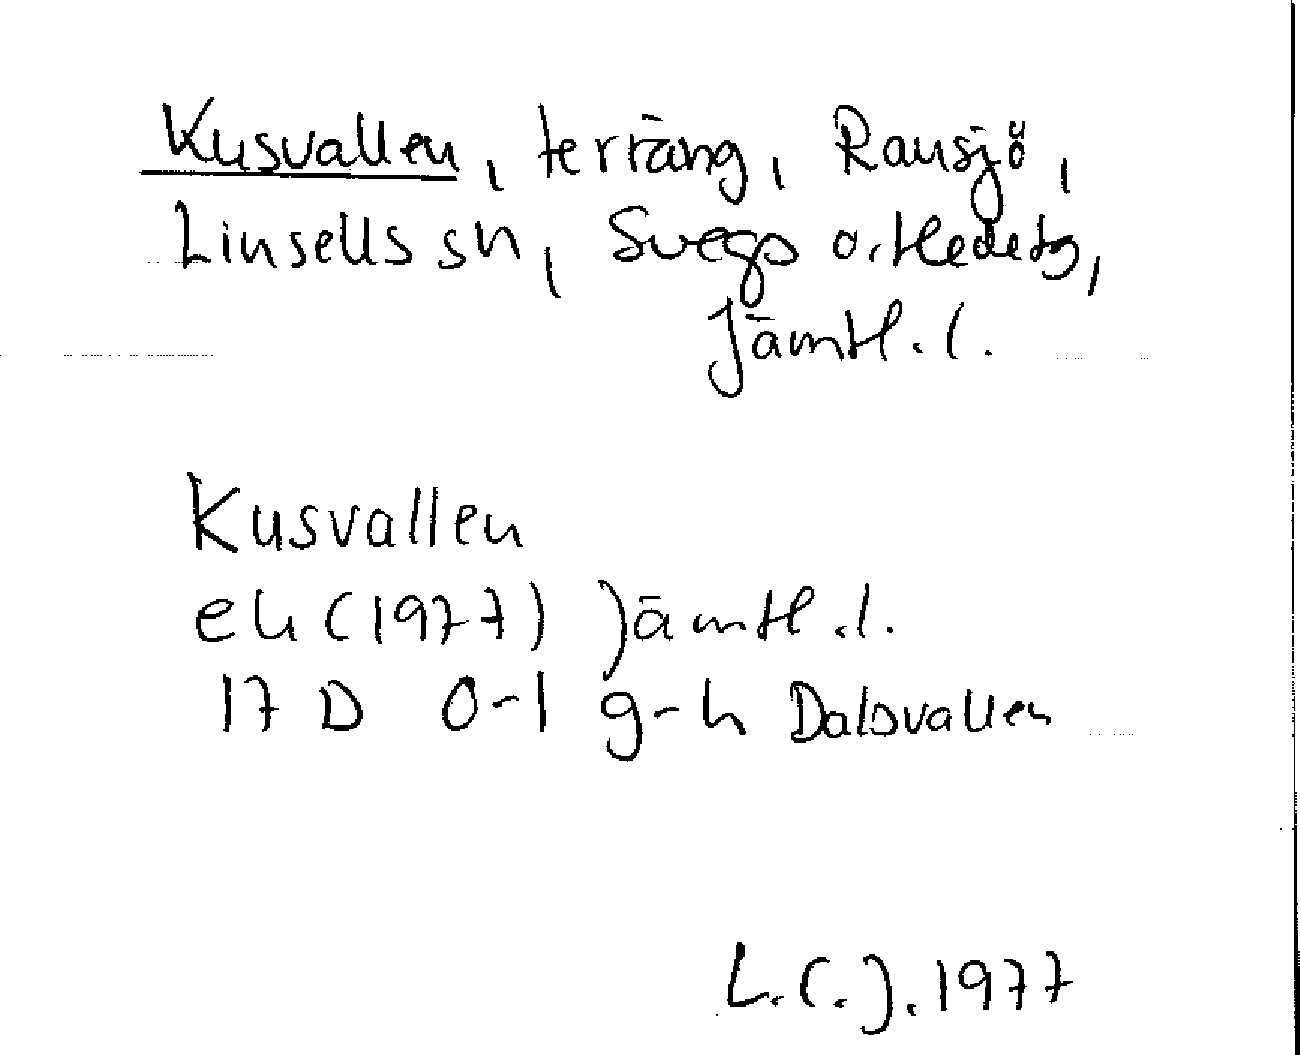 Kusvallen, terräng, Ransjö,
Linsells sn, Svegs o. Hedetg,
Jämtl. l.
Kusvallen
ek (1977) Jämtl. l.
17 D 0-1 g-h Dalsvallen
L.C.J. 1977